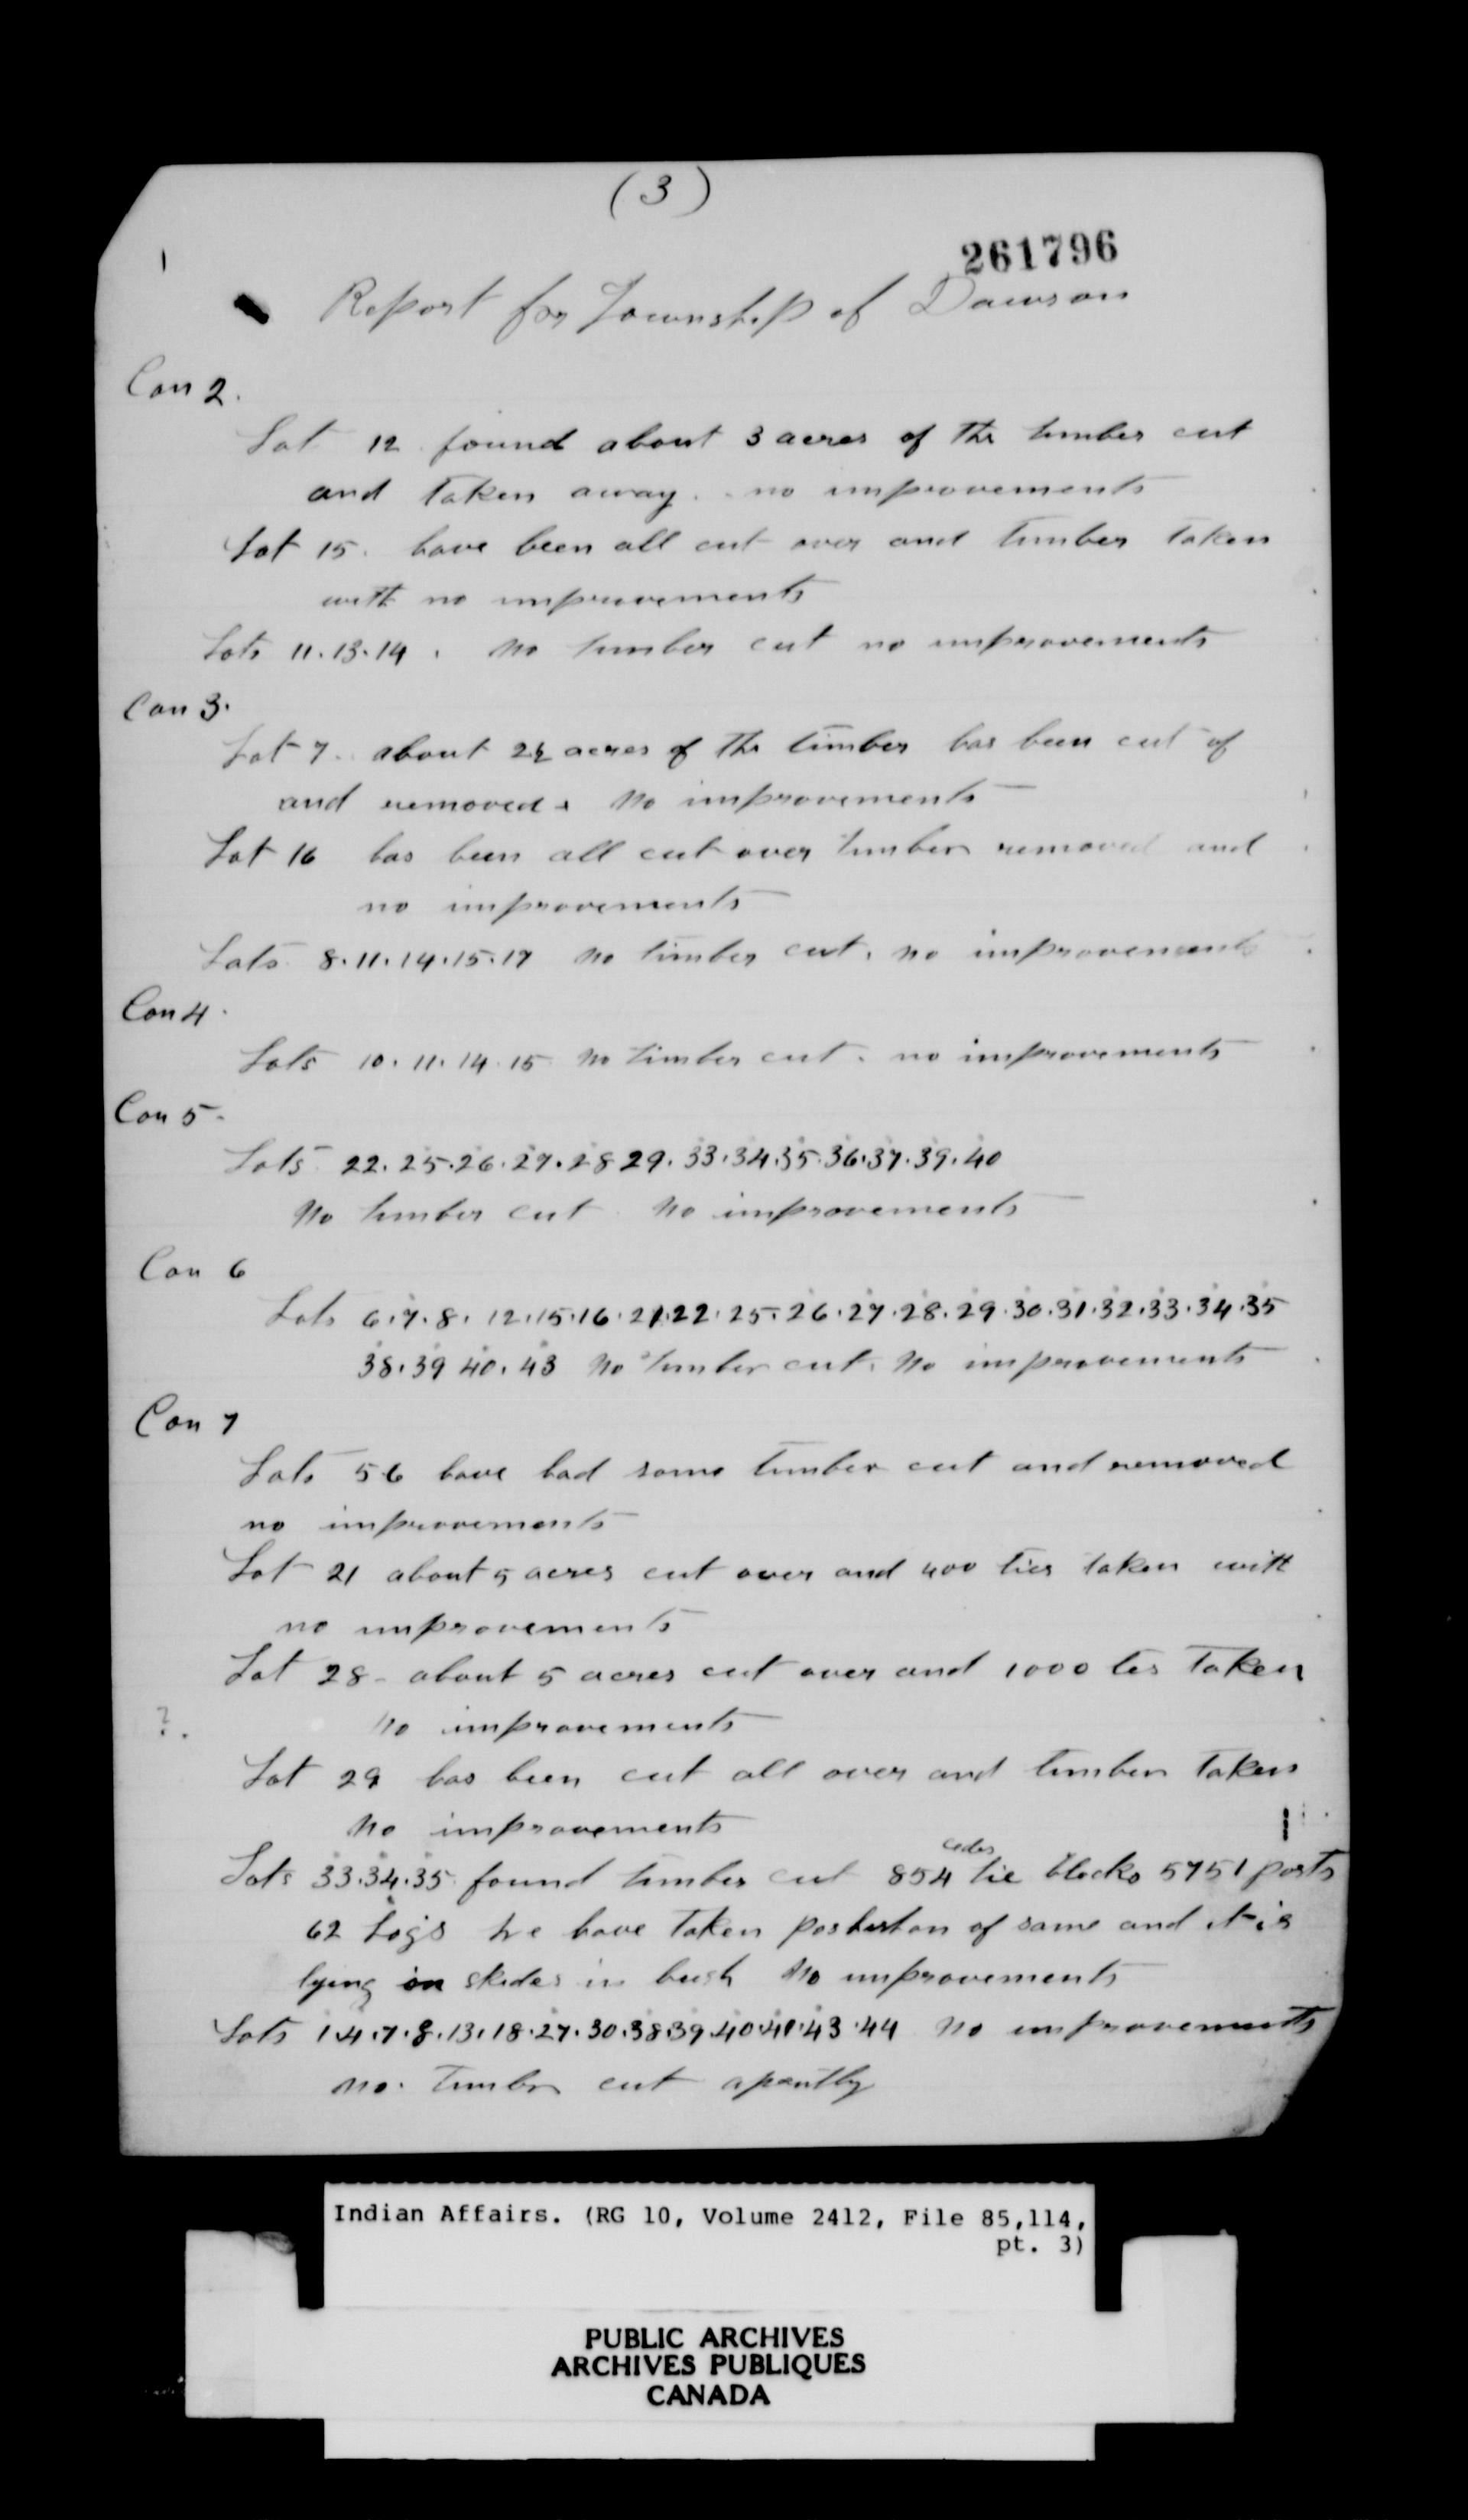 (3)
261796
Report for Township of Dawson
Con 2.
Lot 12 found about 3 acres of the timber cut
and taken away. no improvements
Lot 15. have been all cut over and timber taken
with no improvements
Lots 11.13.14. no timber cut no improvements
Con 3.
Lot 7. about acres of the timber has been cut of
and removed. No improvements
Lot 16 has been all cut over timber removed and
no improvements
Lots 8.11.14.15.17 no timber cut. no improvements
Con 4.
Lots 10.11.14.15 No timber cut. no improvements
Con 5.
Lots 22.25.26.27.28 29.33.34.35.36.37.39.40
No timber cut. No improvements
Con 6
Lots 6.7.8.12.15.16.21.22.25.26.27.28.29.30.31.32.33.34.35
38.39 40.43 No timber cut. No improvements
Con 7
Lots 5.6 have had some timber cut and removed
no improvements
Lot 21 about 5 acres cut over and 400 ties taken with
no improvements
Lot 28 - about 5 acres cut over and 1000 ties taken
No improvements
?.
Lot 29 has been cut all over and timber taken
No improvements
Lots 33.34.35 found timber cut 854 ceder tie blocks 5751 posts
62 Logs we have taken of same and it is
lying on skides in bush No improvements
Lots 1.4.7.8.13.18.27.30.38.39.40.41.43.44 No improvements
no. timber cut apantly
Indian Affairs. (RG 10, Volume 2412, File 85,114,
pt. 3)
PUBLIC ARCHIVES
ARCHIVES PUBLIQUES
CANADA